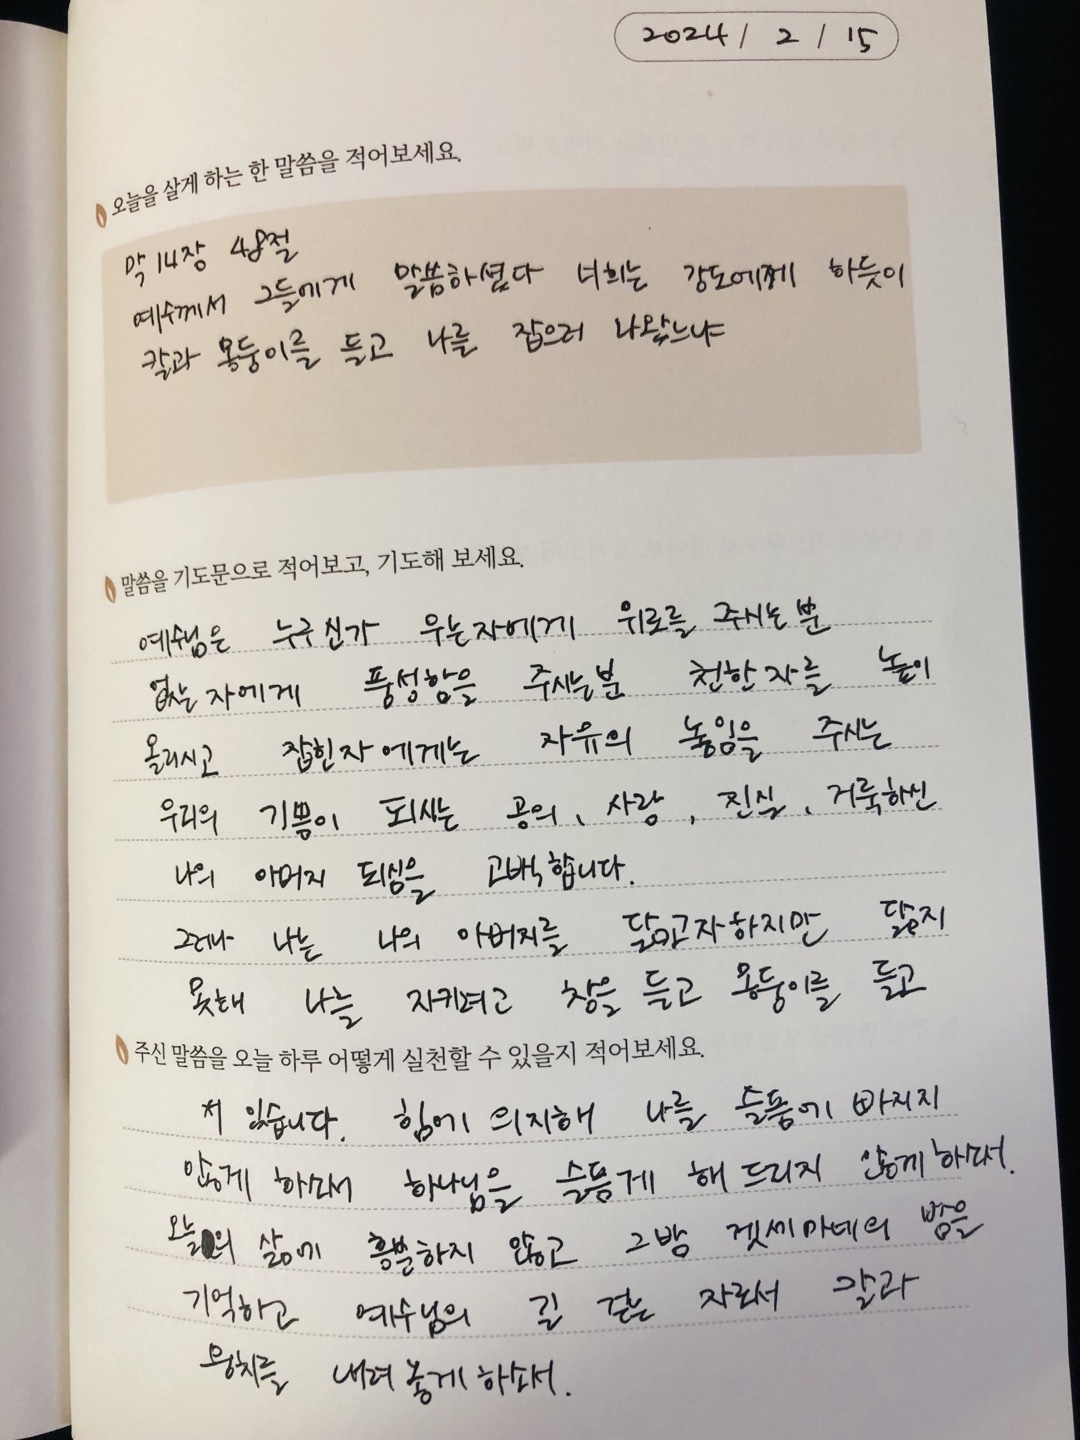 2024 / 2 / 15
오늘을 살게 하는 한 말씀을 적어보세요.
막 14장 48절
예수께서 그들에게 말씀하셨다 너희는 강도에게 하듯이
칼과 몽둥이를 들고 나를 잡으러 나왔느냐
말씀을 기도문으로 적어보고, 기도해 보세요.
예수님은 누구신가 우는자에게 위로를 주시는분
없는자에게 풍성함을 주시는분 천한자를 높이
올리시고 잡힌자에게는 자유의 놓임을 주시는
우리의 기쁨이 되시는 공의, 사랑, 진실, 거룩하신
나의 아버지 되심을 고백합니다.
그러나 나는 나의 아버지를 닮고자하지만 닮지
못해 나를 지키려고 창을 들고 몽둥이를 들고
주신 말씀을 오늘 하루 어떻게 실천할 수 있을지 적어보세요.
서 있습니다. 힘에 의지해 나를 슬픔에 빠지지
않게 하소서 하나님을 슬픔게 해 드리지 않게하소서.
오늘의 삶에 흥분하지 않고 그밤 겟세마네의 밤을
기억하고 예수님의 길 걷는 자로서 칼과
뭉치를 내려놓게하소서.